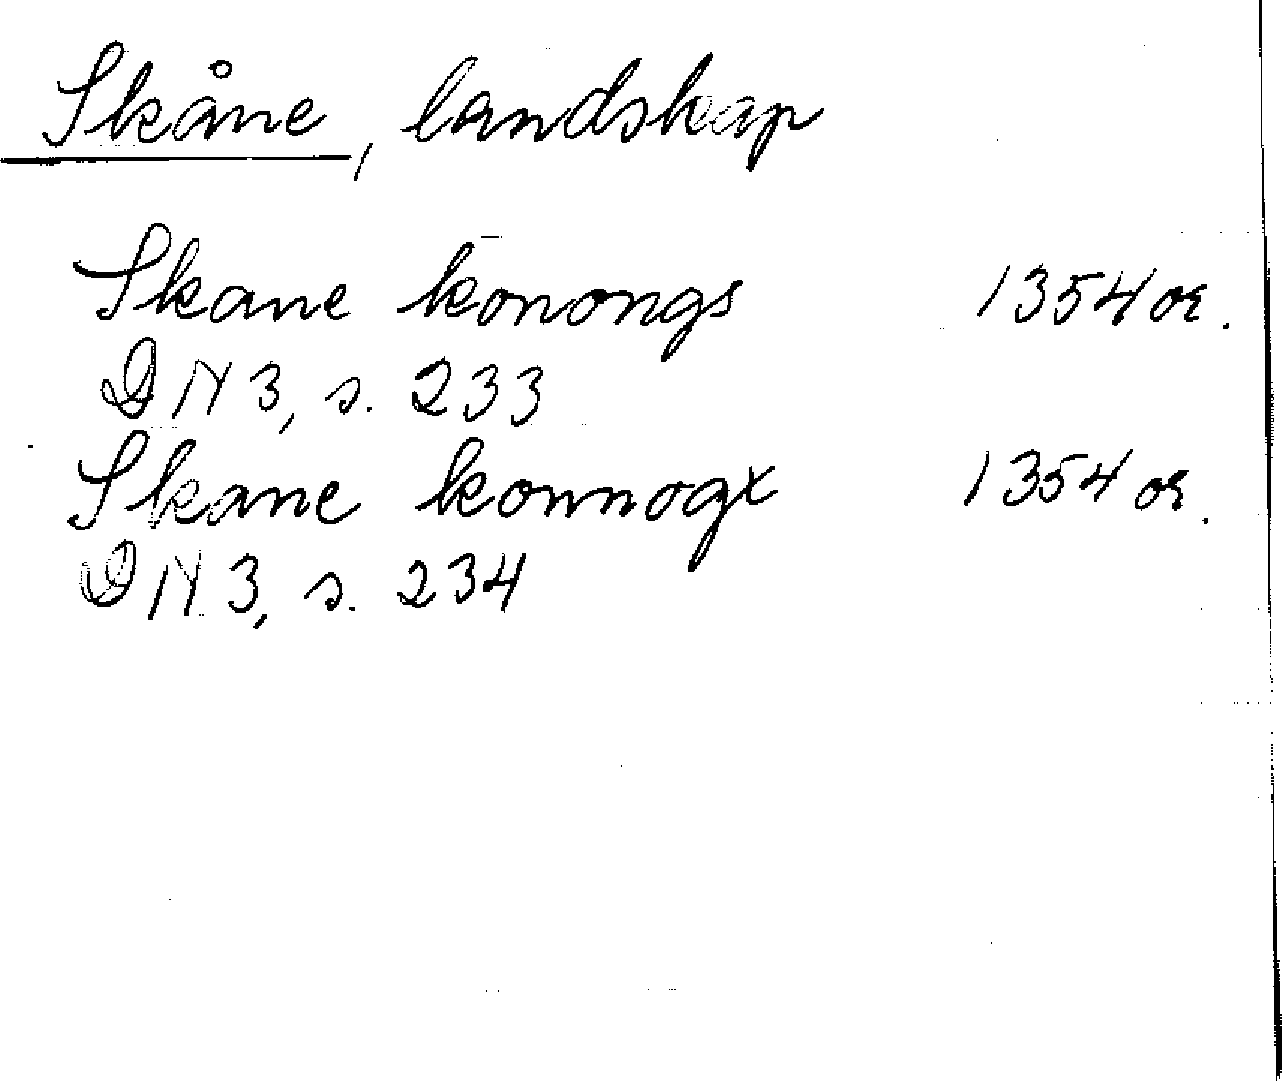 Skåne, landskap
Skane konongs 1354 or.
DN 3, s. 233
Skane konnogx 1354 or.
DN 3, s. 234